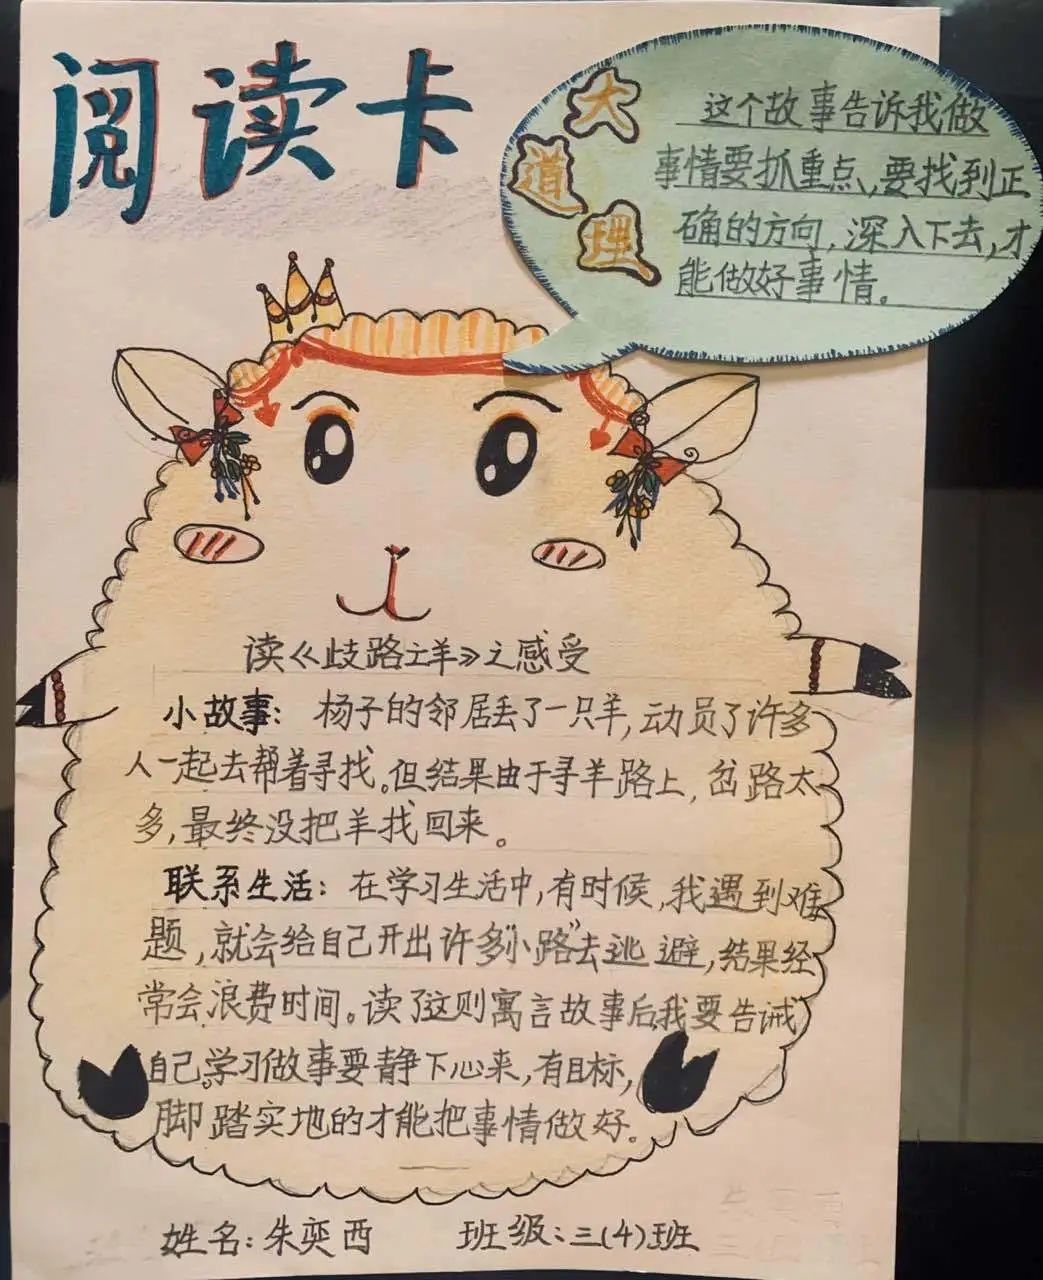 阅读卡
大道理
这个故事告诉我做
事情要抓重点,要找到正
确的方向,深入下去,才
能做好事情。
读《歧路亡羊》之感受
小故事: 杨子的邻居丢了一只羊,动员了许多
人一起去帮着寻找。但结果由于寻羊路上,岔路太
多,最终没把羊找回来。
联系生活: 在学习生活中,有时候,我遇到难
题,就会给自己开出许多“小路”去逃避,结果经
常会浪费时间。读了这则寓言故事后,我要告诫
自己。学习做事要静下心来,有目标,
脚踏实地的才能把事情做好。
姓名:朱奕西 班级:三(4)班